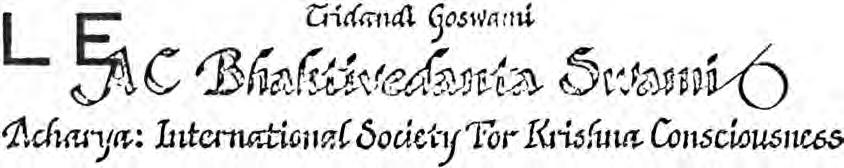 Tridandi Goswami
L E
AC Bhaktivedanta Swami 6
Acharya: International Society For Krishna Consciousness